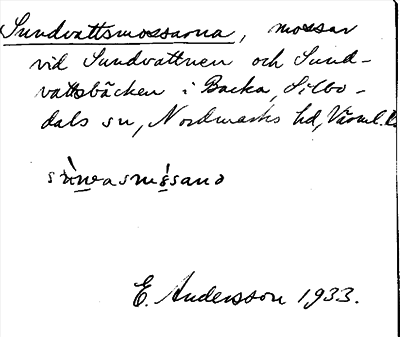 Sundvattsmossarna, mossar
vid Sundvattnen och Sund-
vattsbäcken i Backa, Silbo-
dals sn, Nordmarks hd, Värml.
E. Andersson 1933.